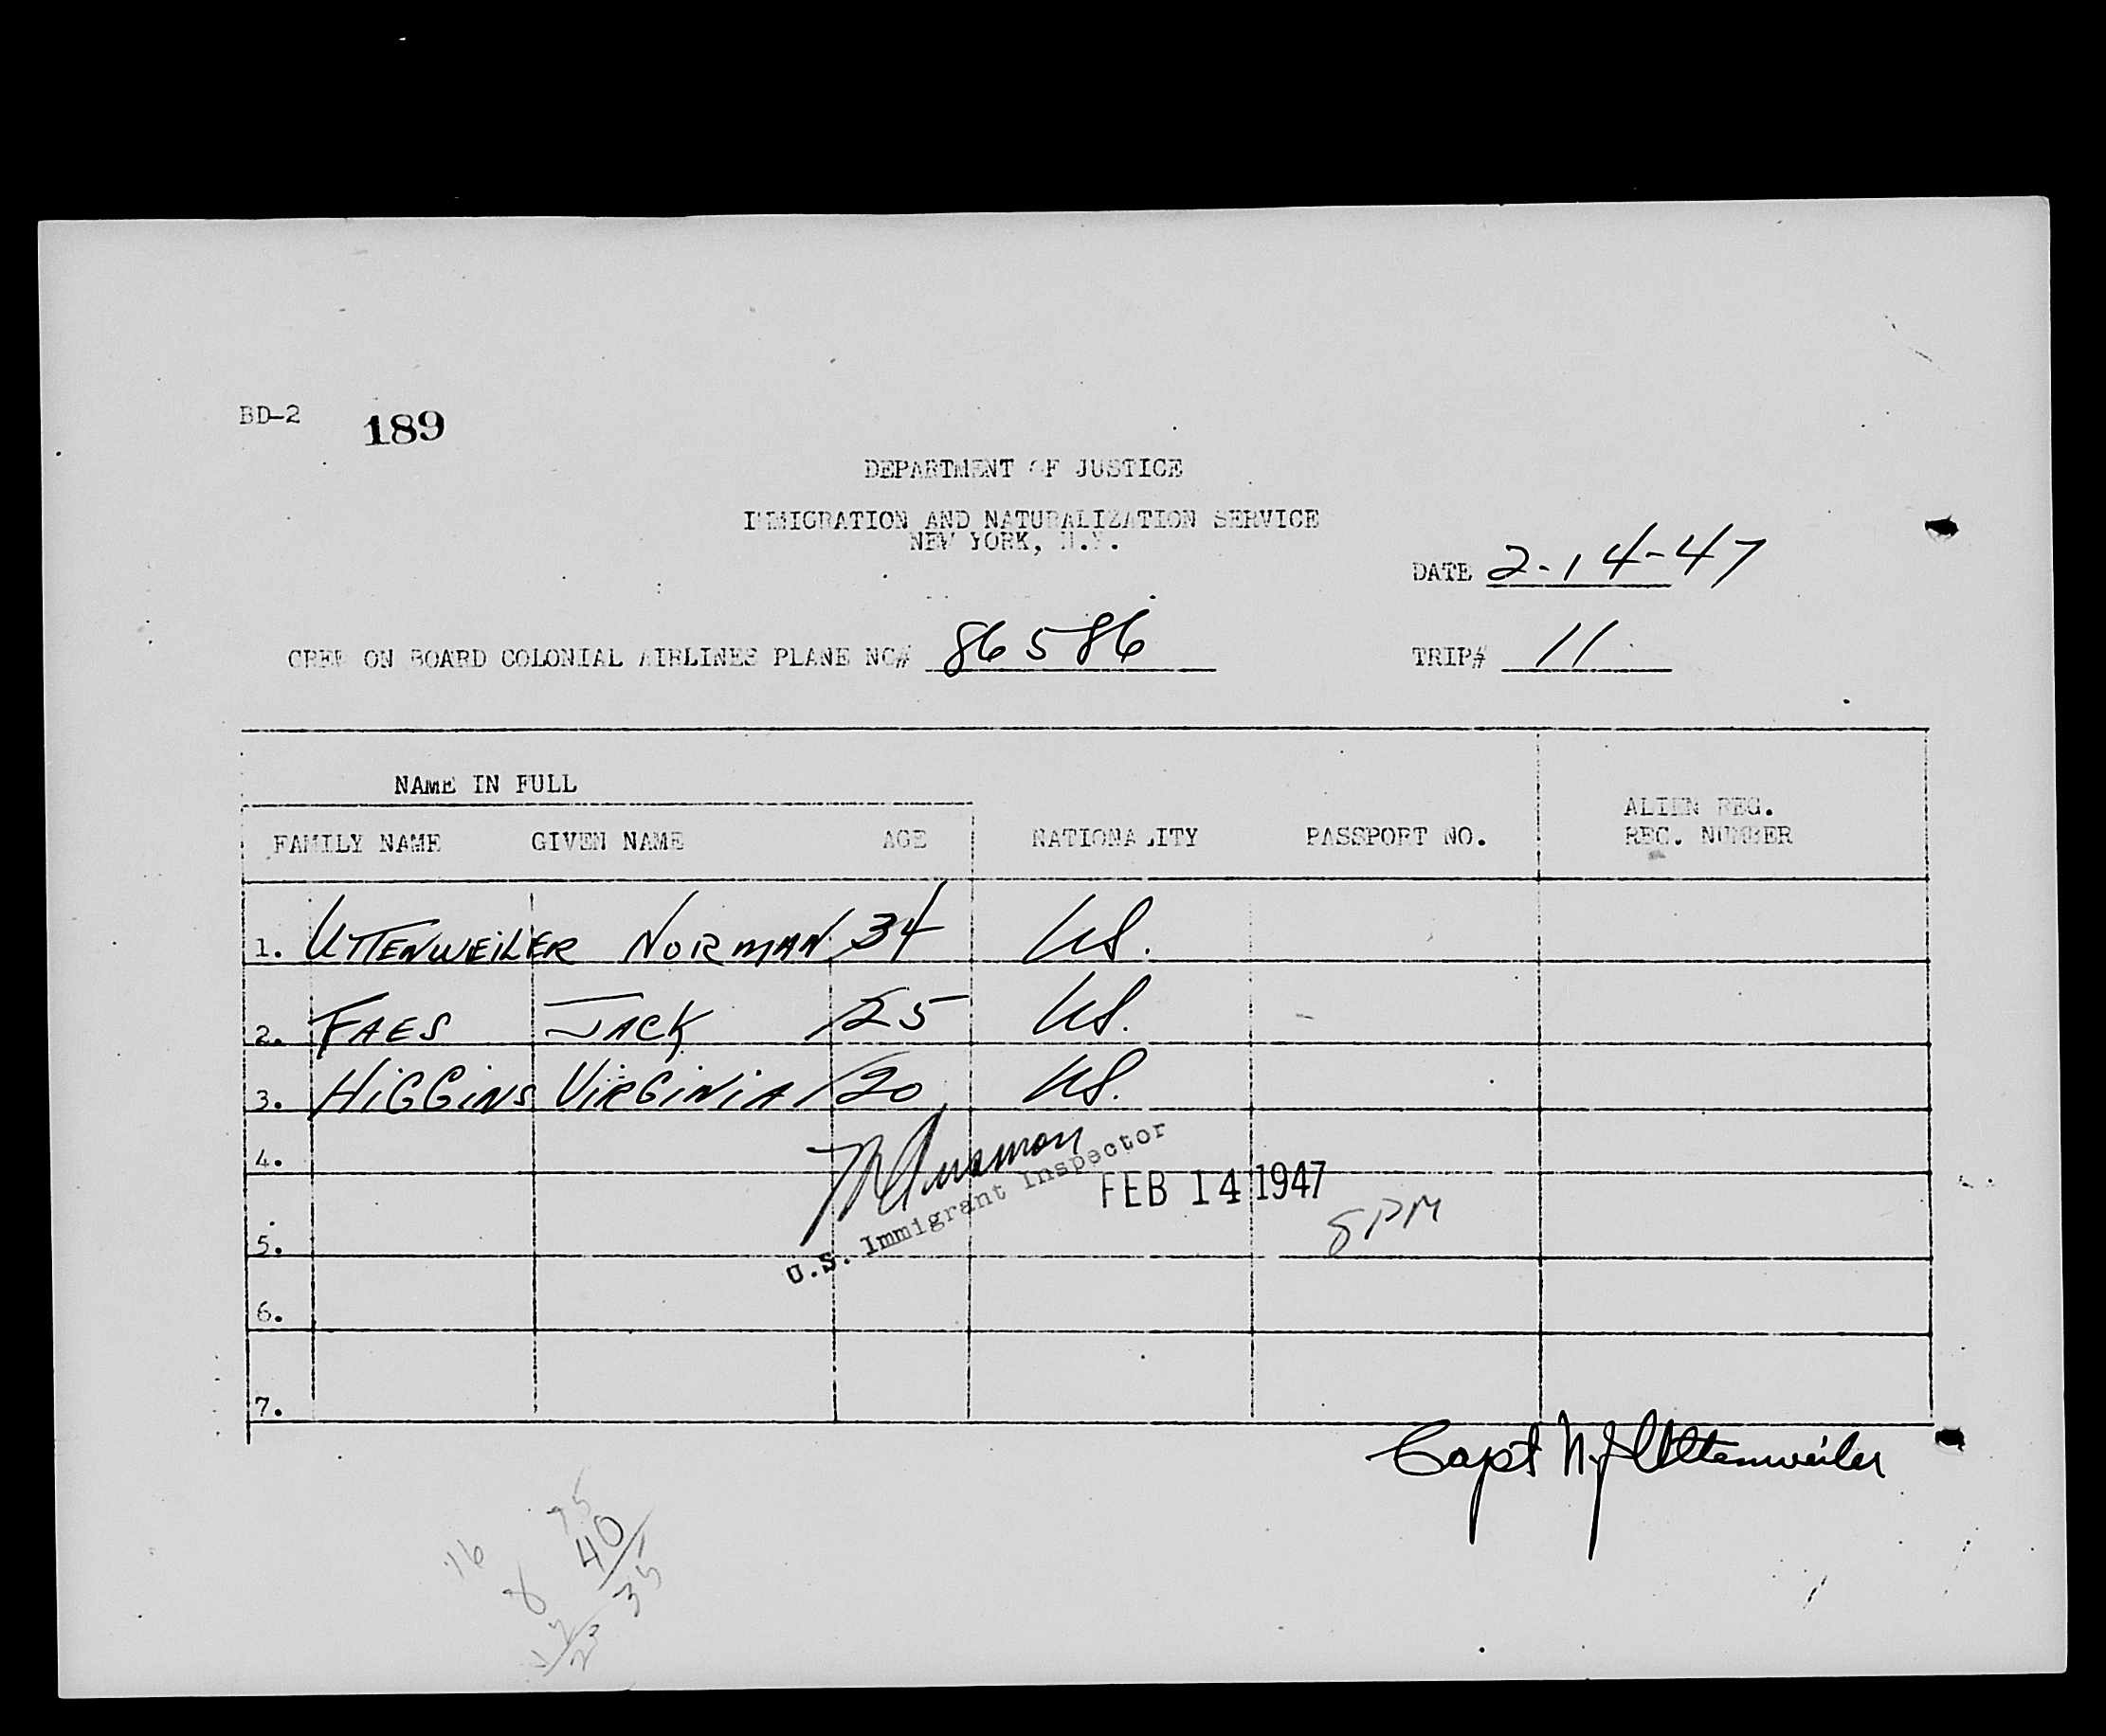 BD-2 189
DEPARTMENT OF JUSTICE
IMMIGRATION AND NATURALIZATION SERVICE
NEW YORK, N.Y.
DATE 2-14-47
CREW ON BOARD COLONIAL AIRLINES PLANE NO# 86586 TRIP# 11
NAME IN FULL
FAMILY NAME GIVEN NAME AGE NATIONALITY PASSPORT NO. ALIEN REG. REC. NUMBER
1. UTTENWEILER NORMAN 34 US.
2. FAES JACK 25 US.
3. HIGGINS VIRGINIA 20 US.
4.
U.S. Immigrant Inspector
FEB 14 1947
8 PM
5.
6.
7.
Capt N J Uttenweiler
16 8
40
35